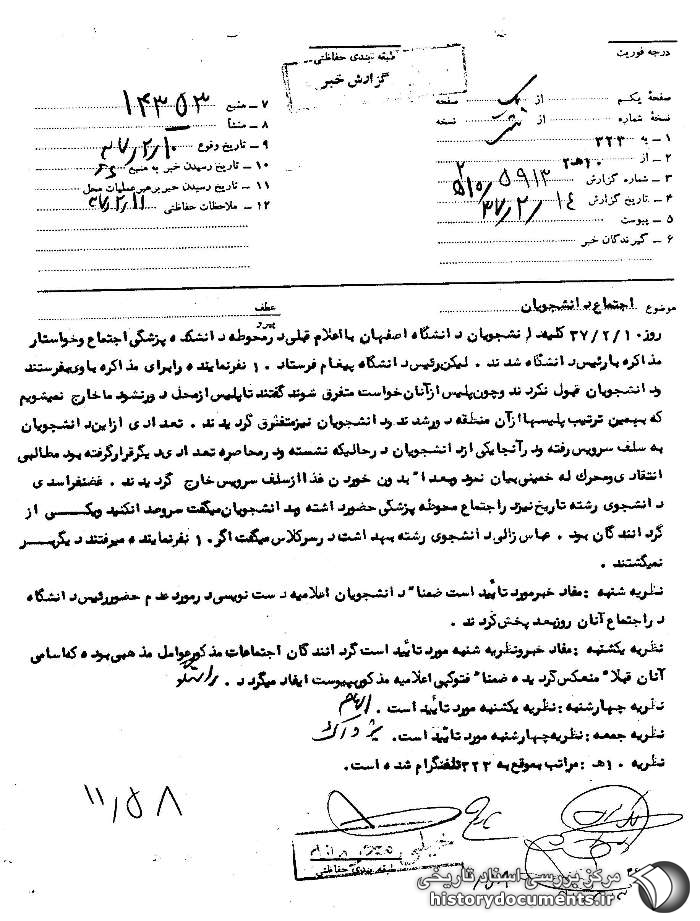 درجه فوریت
طبقه بندی حفاظتی
گزارش خبر
صفحهٔ یکم از یک صفحه
نسخهٔ شماره از نسخه
۱ – به ۳۲۳
۲ – از ۱۰هـ۲
۳ – شماره گزارش ۵۹۱۳/
۴ – تاریخ گزارش ۳۷/۲/۱۴
۵ – پیوست
۶ – گیرندگان خبر
۷ – منبع ۱۴۳۵۳
۸ – منشأ
۹ – تاریخ وقوع ۳۷/۲/۱۰
۱۰ – تاریخ رسیدن خبر به منبع
۱۱ – تاریخ رسیدن خبر برهبر عملیات محل
۱۲ – ملاحظات حفاظتی ۳۷/۲/۱۱
موضوع اجتماع دانشجویان
عطف
پیرو
روز ۳۷/۲/۱۰ کلیه دانشجویان دانشگاه اصفهان با اعلام قبلی در محوطه دانشکده پزشکی اجتماع و خواستار
مذاکره با رئیس دانشگاه شدند . لیکن رئیس دانشگاه پیغام فرستاد ۱۰ نفر نماینده را برای مذاکره با وی بفرستند
ودانشجویان قبول نکردند وچون پلیس از آنان خواست متفرق شوند گفتند تا پلیس از محل دور نشود ما خارج نمیشویم
که بهمین ترتیب پلیسها از آن منطقه دور شدند ودانشجویان نیز متفرق گردیدند . تعدادی از این دانشجویان
به سلف سرویس رفته ودر آنجا یکی از دانشجویان در حالیکه نشسته ودر محاصره تعدادی دیگر قرار گرفته بود مطالبی
انتقادی ومحرک له خمینی بیان نمود وبعدا" بدون خوردن غذا از سلف سرویس خارج گردیدند . غضنفر اسدی
دانشجوی رشته تاریخ نیز در اجتماع محوطه پزشکی حضور داشته وبدانشجویان میگفت سروصدا نکنید ویکی از
گردانندگان بود . عباس زالی دانشجوی رشته بهداشت در سر کلاس میگفت اگر ۱۰ نفر نماینده میرفتند دیگر بر
نمیگشتند .
نظریه شنبه : مفاد خبر مورد تائید است ضمنا" دانشجویان اعلامیه دست نویسی در مورد عدم حضور رئیس دانشگاه
در اجتماع آنان روز بعد پخش کردند .
نظریه یکشنبه : مفاد خبر ونظریه شنبه مورد تائید است گردانندگان اجتماعات مذکور عوامل مذهبی بوده که اسامی
آنان قبلا" منعکس گردیده ضمنا" فتوکپی اعلامیه مذکور بپیوست ایفاد میگردد . راستگو
نظریه چهارشنبه : نظریه یکشنبه مورد تائید است . الهام
نظریه جمعه : نظریه چهارشنبه مورد تائید است .
نظریه ۱۰هـ : مراتب بموقع به ۳۲۲ تلفنگرام شده است .
۱۱/۵۸
خیلی محرمانه
طبقه بندی حفاظتی
مرکز بررسی اسناد تاریخی
historydocuments.ir